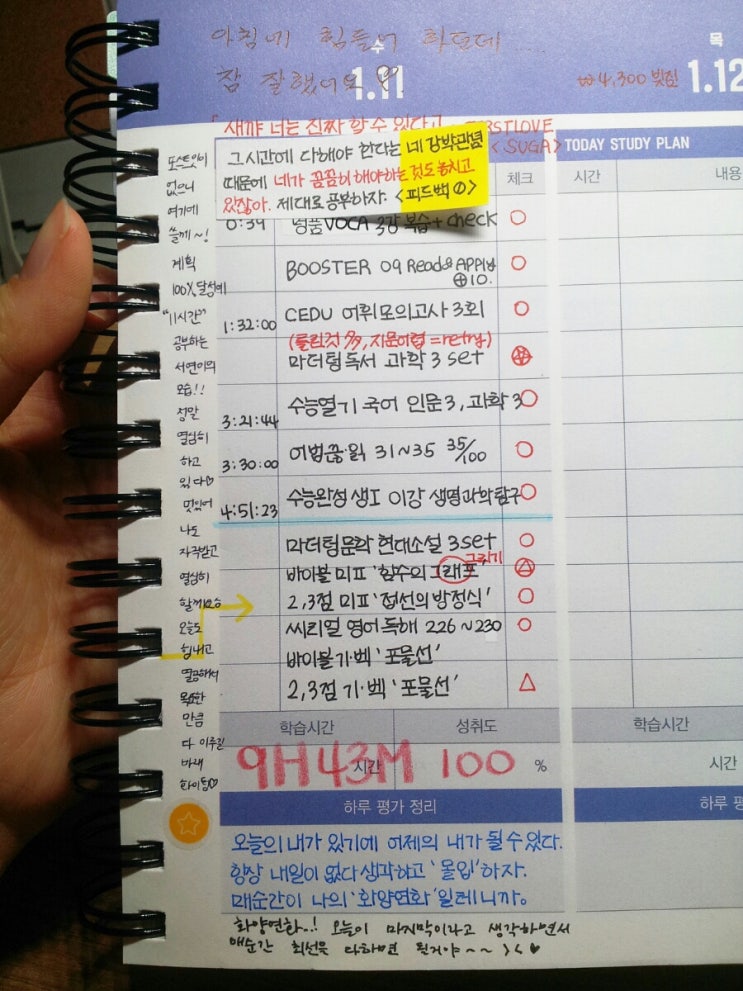 아침에 힘들어 하던데
참 잘했어요
수
1.11
목
1.12
₩4,300 빚짐
「새꺄 너는 진짜 할 수 있다고
<SUGA>
그시간에 다해야 한다는 네 강박관념
때문에 네가 꼼꼼히 해야하는 것도 놓치고
있잖아. 제대로 공부하자. <피드백 ①>
TODAY STUDY PLAN
체크
시간
내용
포스트잇이
없으니
여기에
쓸께~!
계획
100% 달성에
"11시간"
공부하는
서연이의
모습!!
정말
열심히
하고
있다♡
멋있어
나도
자극받고
열심히
할께요
오늘도
힘내고
열공해서
목표한
만큼
다 이루길
바래
화이팅♡
0:39 명품 VOCA 3강 복습 + check ○
BOOSTER 09 Read & APPly ○
⊕10.
1:32:00 CEDU 어휘모의고사 3회 ○
마더텅독서 과학 3 set
3:21:44 수능열기 국어 인문 3, 과학 3 ○
3:30:00 어법끊·읽 31~35 35/100 ○
4:51:23 수능완성 생I 이강 생명과학탐구 ○
마더텅문학 현대소설 3set ○
그리기
바이블 미표 '함수의 그래프'
2,3점 미표 '접선의 방정식' ○
씨리얼 영어독해 226~230 ○
바이블 기·벡 '포물선'
2,3점 기·벡 '포물선' △
학습시간
성취도
학습시간
9H 43M
시간
100
%
시간
하루 평가 정리
하루 평
오늘의 내가 있기에 어제의 내가 될 수 있다.
항상 내일이 없다 생각하고 '몰입'하자.
매순간이 나의 '화양연화' 일테니까.
화양연화..! 오늘이 마지막이라고 생각하면서
매순간 최선을 다하면 될거야~~ >< ♥